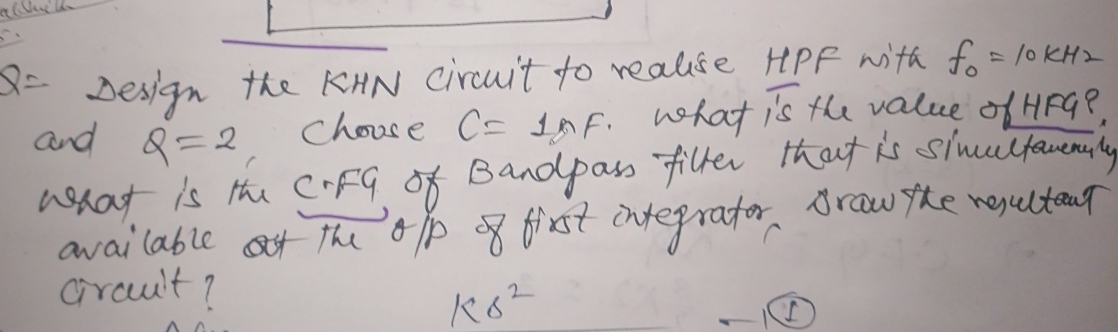 Q= Design the KHN Circuit to realise HPF with f₀ = 10KHz
and Q = 2, Choose C = 1nF. what is the value of HFG?.
what is the C.FG of Bandpass filter that is simultaneously
available at the o/p of first integrator, Draw the resultant
Circuit?
Ks² — ①